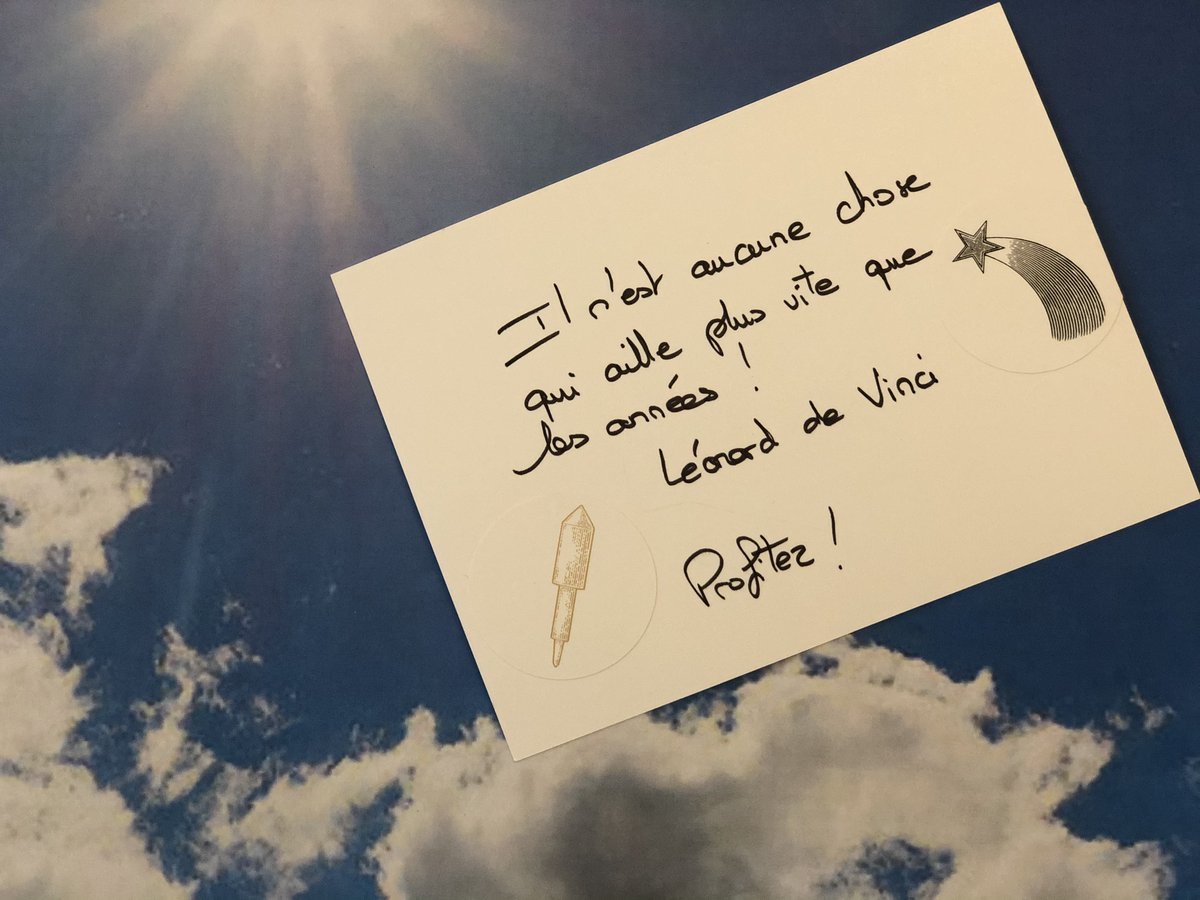 Il n'est aucune chose
qui aille plus vite que
les années !
Léonard de Vinci
Profitez !